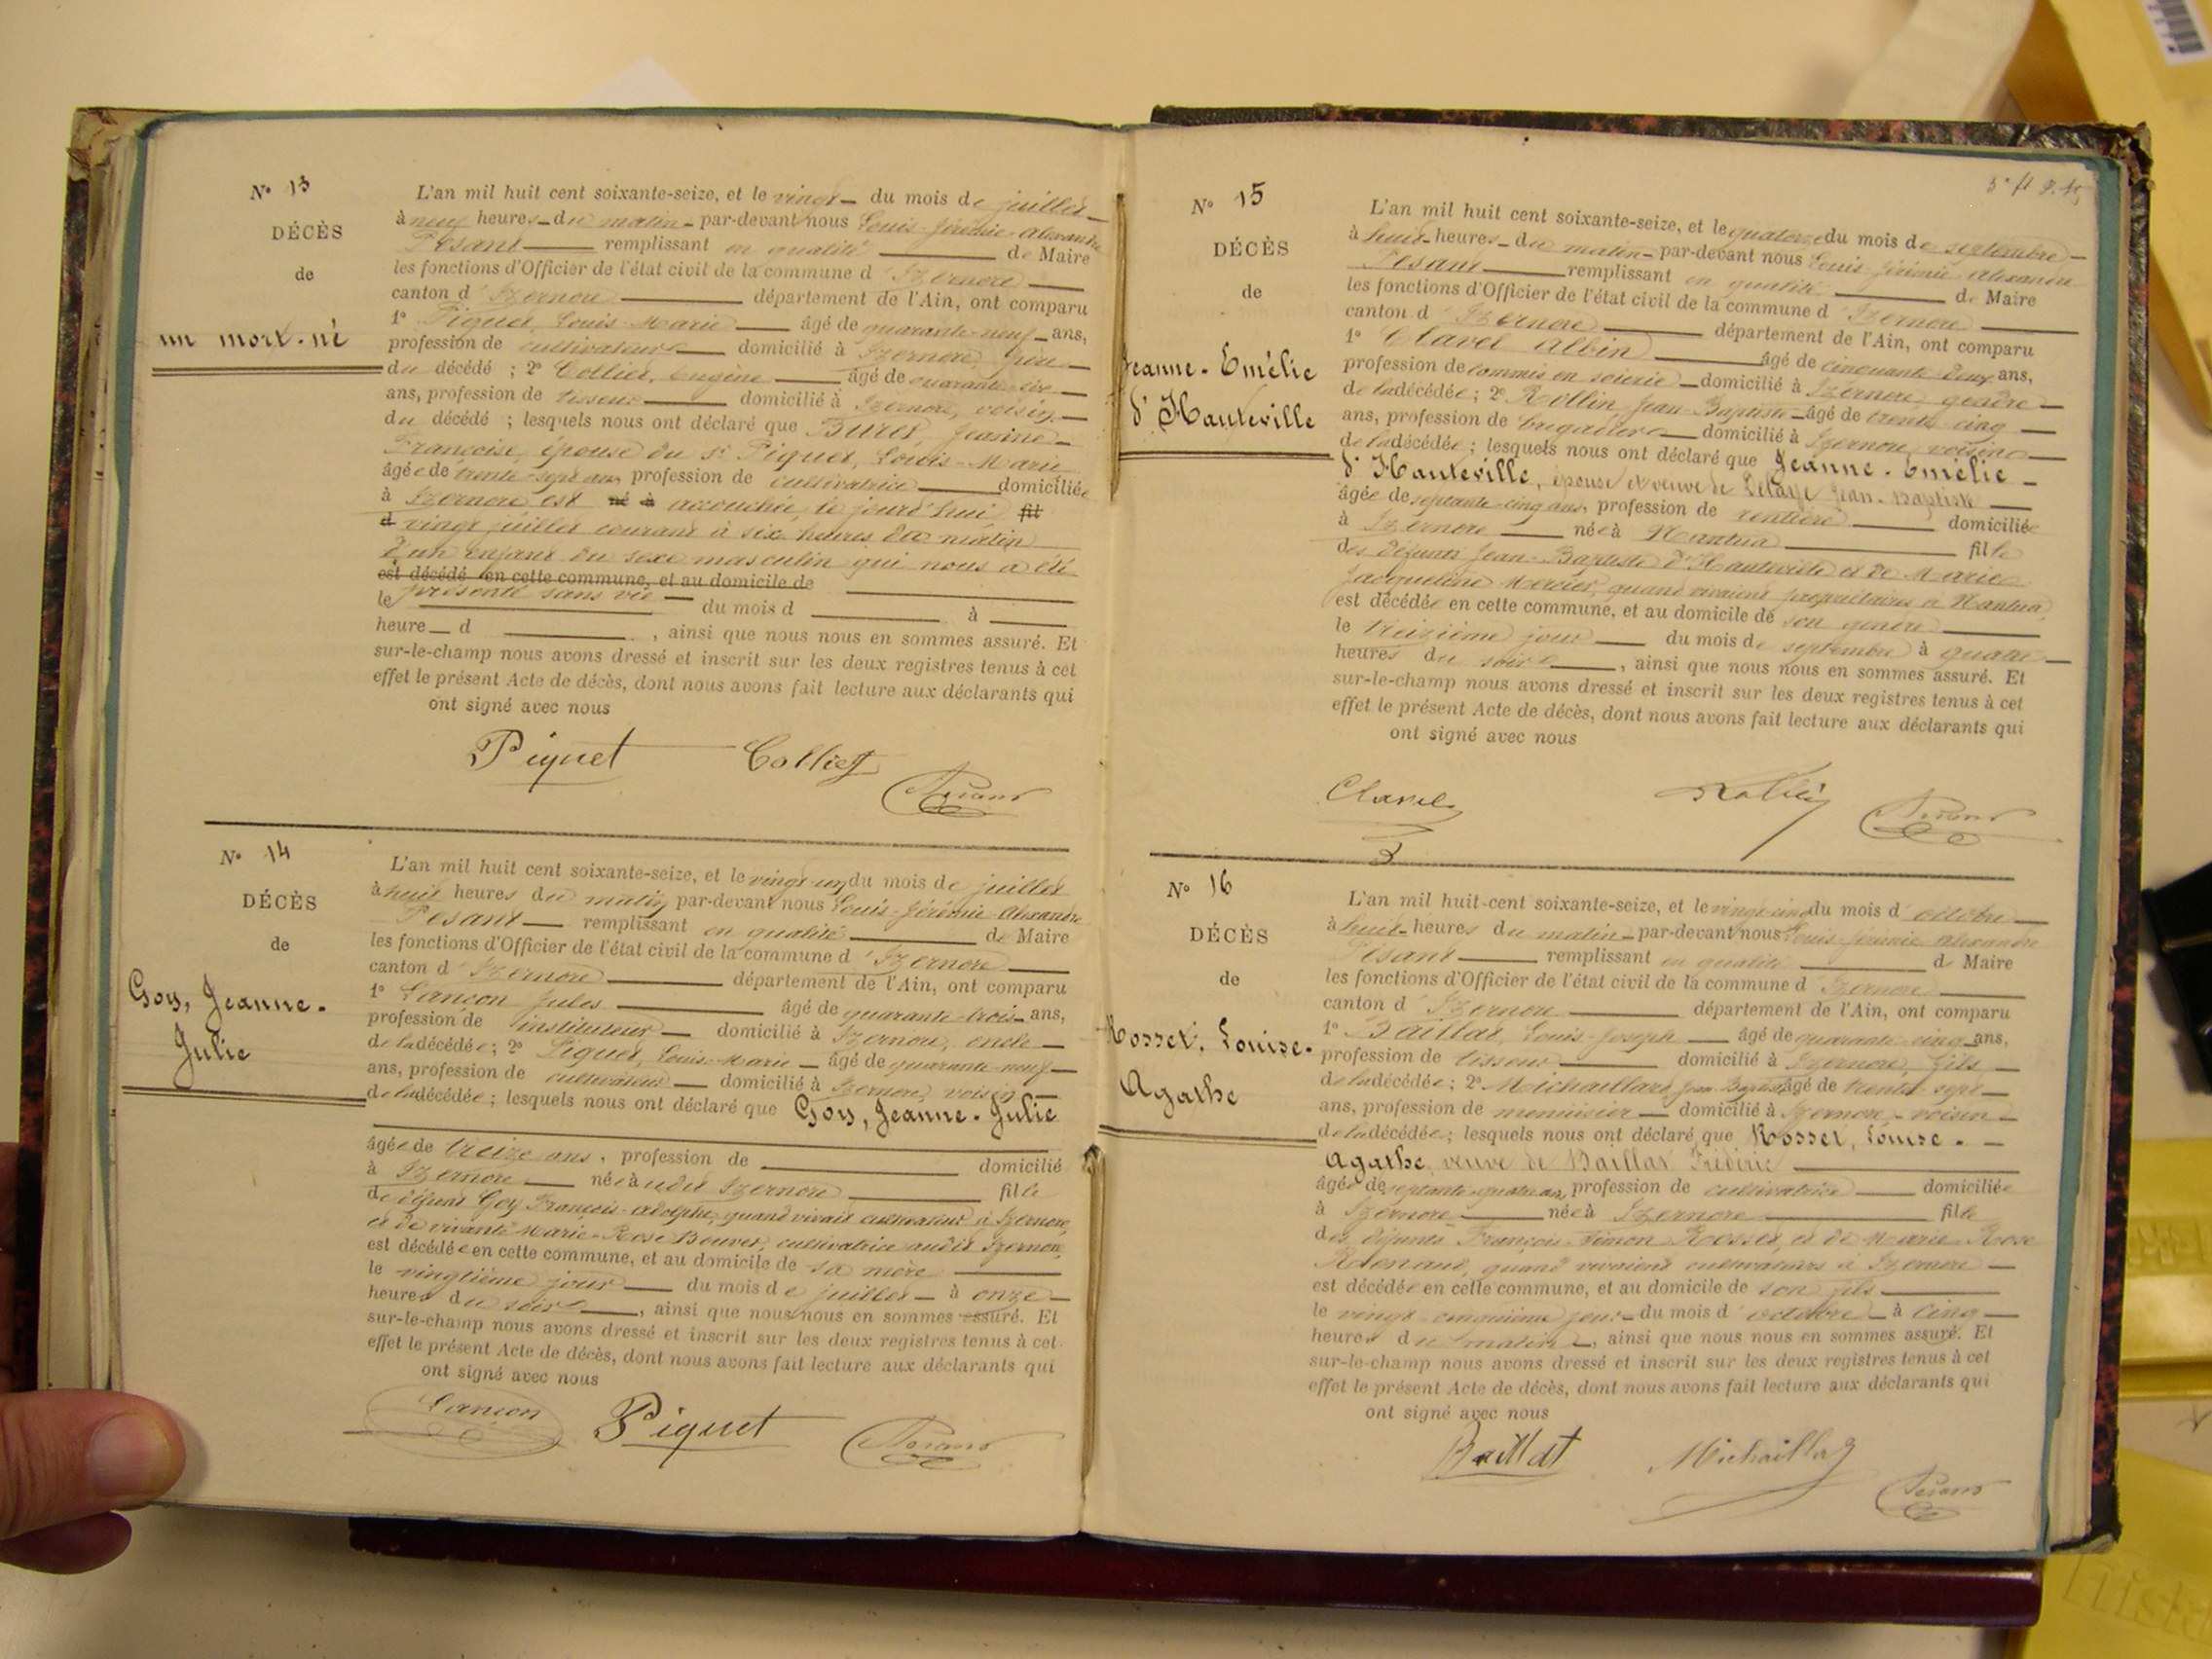 N° 13
DÉCÈS
de
un mort-né
L'an mil huit cent soixante-seize, et le vingt du mois de juillet
à neuf heures du matin par-devant nous Louis-Jérémie-Alexandre
Pesant remplissant en qualité de Maire
les fonctions d'Officier de l'état civil de la commune d'Izernore
canton d'Izernore département de l'Ain, ont comparu
1° Piquet, Louis-Marie âgé de quarante-neuf ans,
profession de cultivateur domicilié à Izernore, père
du décédé ; 2° Colliet, Eugène âgé de quarante-six
ans, profession de tisseur domicilié à Izernore, voisin
du décédé ; lesquels nous ont déclaré que Buret, Jeanne-
Françoise, épouse du Sr Piquet, Louis-Marie
âgée de trente-sept ans profession de cultivatrice domiciliée
à Izernore est né à accouchée, le jourd'hui, fil
d vingt juillet courant à six heures du matin
d'un enfant du sexe masculin qui nous a été
est décédé en cette commune, et au domicile de
présenté sans vie
le du mois d à
heure d , ainsi que nous nous en sommes assuré. Et
sur-le-champ nous avons dressé et inscrit sur les deux registres tenus à cet
effet le présent Acte de décès, dont nous avons fait lecture aux déclarants qui
ont signé avec nous
Piquet Colliet Pesant
N° 14
DÉCÈS
de
Goy, Jeanne-
Julie
L'an mil huit cent soixante-seize, et le vingt-un du mois de juillet
à huit heures du matin par-devant nous Louis-Jérémie-Alexandre
Pesant remplissant en qualité de Maire
les fonctions d'Officier de l'état civil de la commune d'Izernore
canton d'Izernore département de l'Ain, ont comparu
1° Lançon Jules âgé de quarante-trois ans,
profession de instituteur domicilié à Izernore, oncle
de la décédée ; 2° Piquet, Louis-Marie âgé de quarante-neuf
ans, profession de cultivateur domicilié à Izernore, voisin
de la décédée ; lesquels nous ont déclaré que Goy, Jeanne-Julie
âgée de treize ans, profession de domicilié
à Izernore née à udit Izernore fille
de défunt Goy François-Adolphe, quand vivait cultivateur à Izernore,
et de vivante Marie-Rose Bouvet, cultivatrice audit Izernore,
est décédée en cette commune, et au domicile de sa mère
le vingtième jour du mois de juillet à onze
heures du soir , ainsi que nous nous en sommes assuré. Et
sur-le-champ nous avons dressé et inscrit sur les deux registres tenus à cet
effet le présent Acte de décès, dont nous avons fait lecture aux déclarants qui
ont signé avec nous
Lançon Piquet Pesant
N° 15
DÉCÈS
de
Jeanne-Emélie
d'Hauteville
L'an mil huit cent soixante-seize, et le quatorze du mois de septembre
à huit heures du matin par-devant nous Louis-Jérémie Alexandre
Pesant remplissant en qualité de Maire
les fonctions d'Officier de l'état civil de la commune d'Izernore
canton d'Izernore département de l'Ain, ont comparu
1° Clavel Albin âgé de cinquante-deux ans,
profession de commis en soierie domicilié à Izernore, gendre
de la décédée ; 2° Rollin, Jean-Baptiste âgé de trente-cinq
ans, profession de brigadier domicilié à Izernore, voisin
de la décédée ; lesquels nous ont déclaré que Jeanne-Emélie
d'Hauteville, épouse et veuve de Jean-Baptiste
âgée de septante-cinq ans, profession de rentière domiciliée
à Izernore née à Nantua fille
des défunts Jean-Baptiste d'Hauteville et de Marie
Jacqueline Mercier, quand vivaient propriétaires à Nantua,
est décédée en cette commune, et au domicile de son gendre
le treizième jour du mois de septembre à quatre
heures du soir , ainsi que nous nous en sommes assuré. Et
sur-le-champ nous avons dressé et inscrit sur les deux registres tenus à cet
effet le présent Acte de décès, dont nous avons fait lecture aux déclarants qui
ont signé avec nous
Clavel Rollin Pesant
N° 16
DÉCÈS
de
Rosset, Louise-
Agathe
L'an mil huit cent soixante-seize, et le vingt-cinq du mois d'octobre
à huit heures du matin par-devant nous Louis-Jérémie Alexandre
Pesant remplissant en qualité de Maire
les fonctions d'Officier de l'état civil de la commune d'Izernore
canton d'Izernore département de l'Ain, ont comparu
1° Baillat, Louis-Joseph âgé de quarante-cinq ans,
profession de tisseur domicilié à Izernore, fils
de la décédée ; 2° Michaillard Jean-Baptiste âgé de trente-sept
ans, profession de menuisier domicilié à Izernore, voisin
de la décédée ; lesquels nous ont déclaré que Rosset, Louise-
Agathe, veuve de Baillat Frédéric
âgée de septante-quatre ans, profession de cultivatrice domiciliée
à Izernore née à Izernore fille
des défunts François-Simon Rosset, et de Marie Rose
Renaud, quand vivaient cultivateurs à Izernore
est décédée en cette commune, et au domicile de son fils
le vingt-cinquième jour du mois d'octobre à cinq
heures du matin , ainsi que nous nous en sommes assuré. Et
sur-le-champ nous avons dressé et inscrit sur les deux registres tenus à cet
effet le présent Acte de décès, dont nous avons fait lecture aux déclarants qui
ont signé avec nous
Baillat Michaillard Pesant